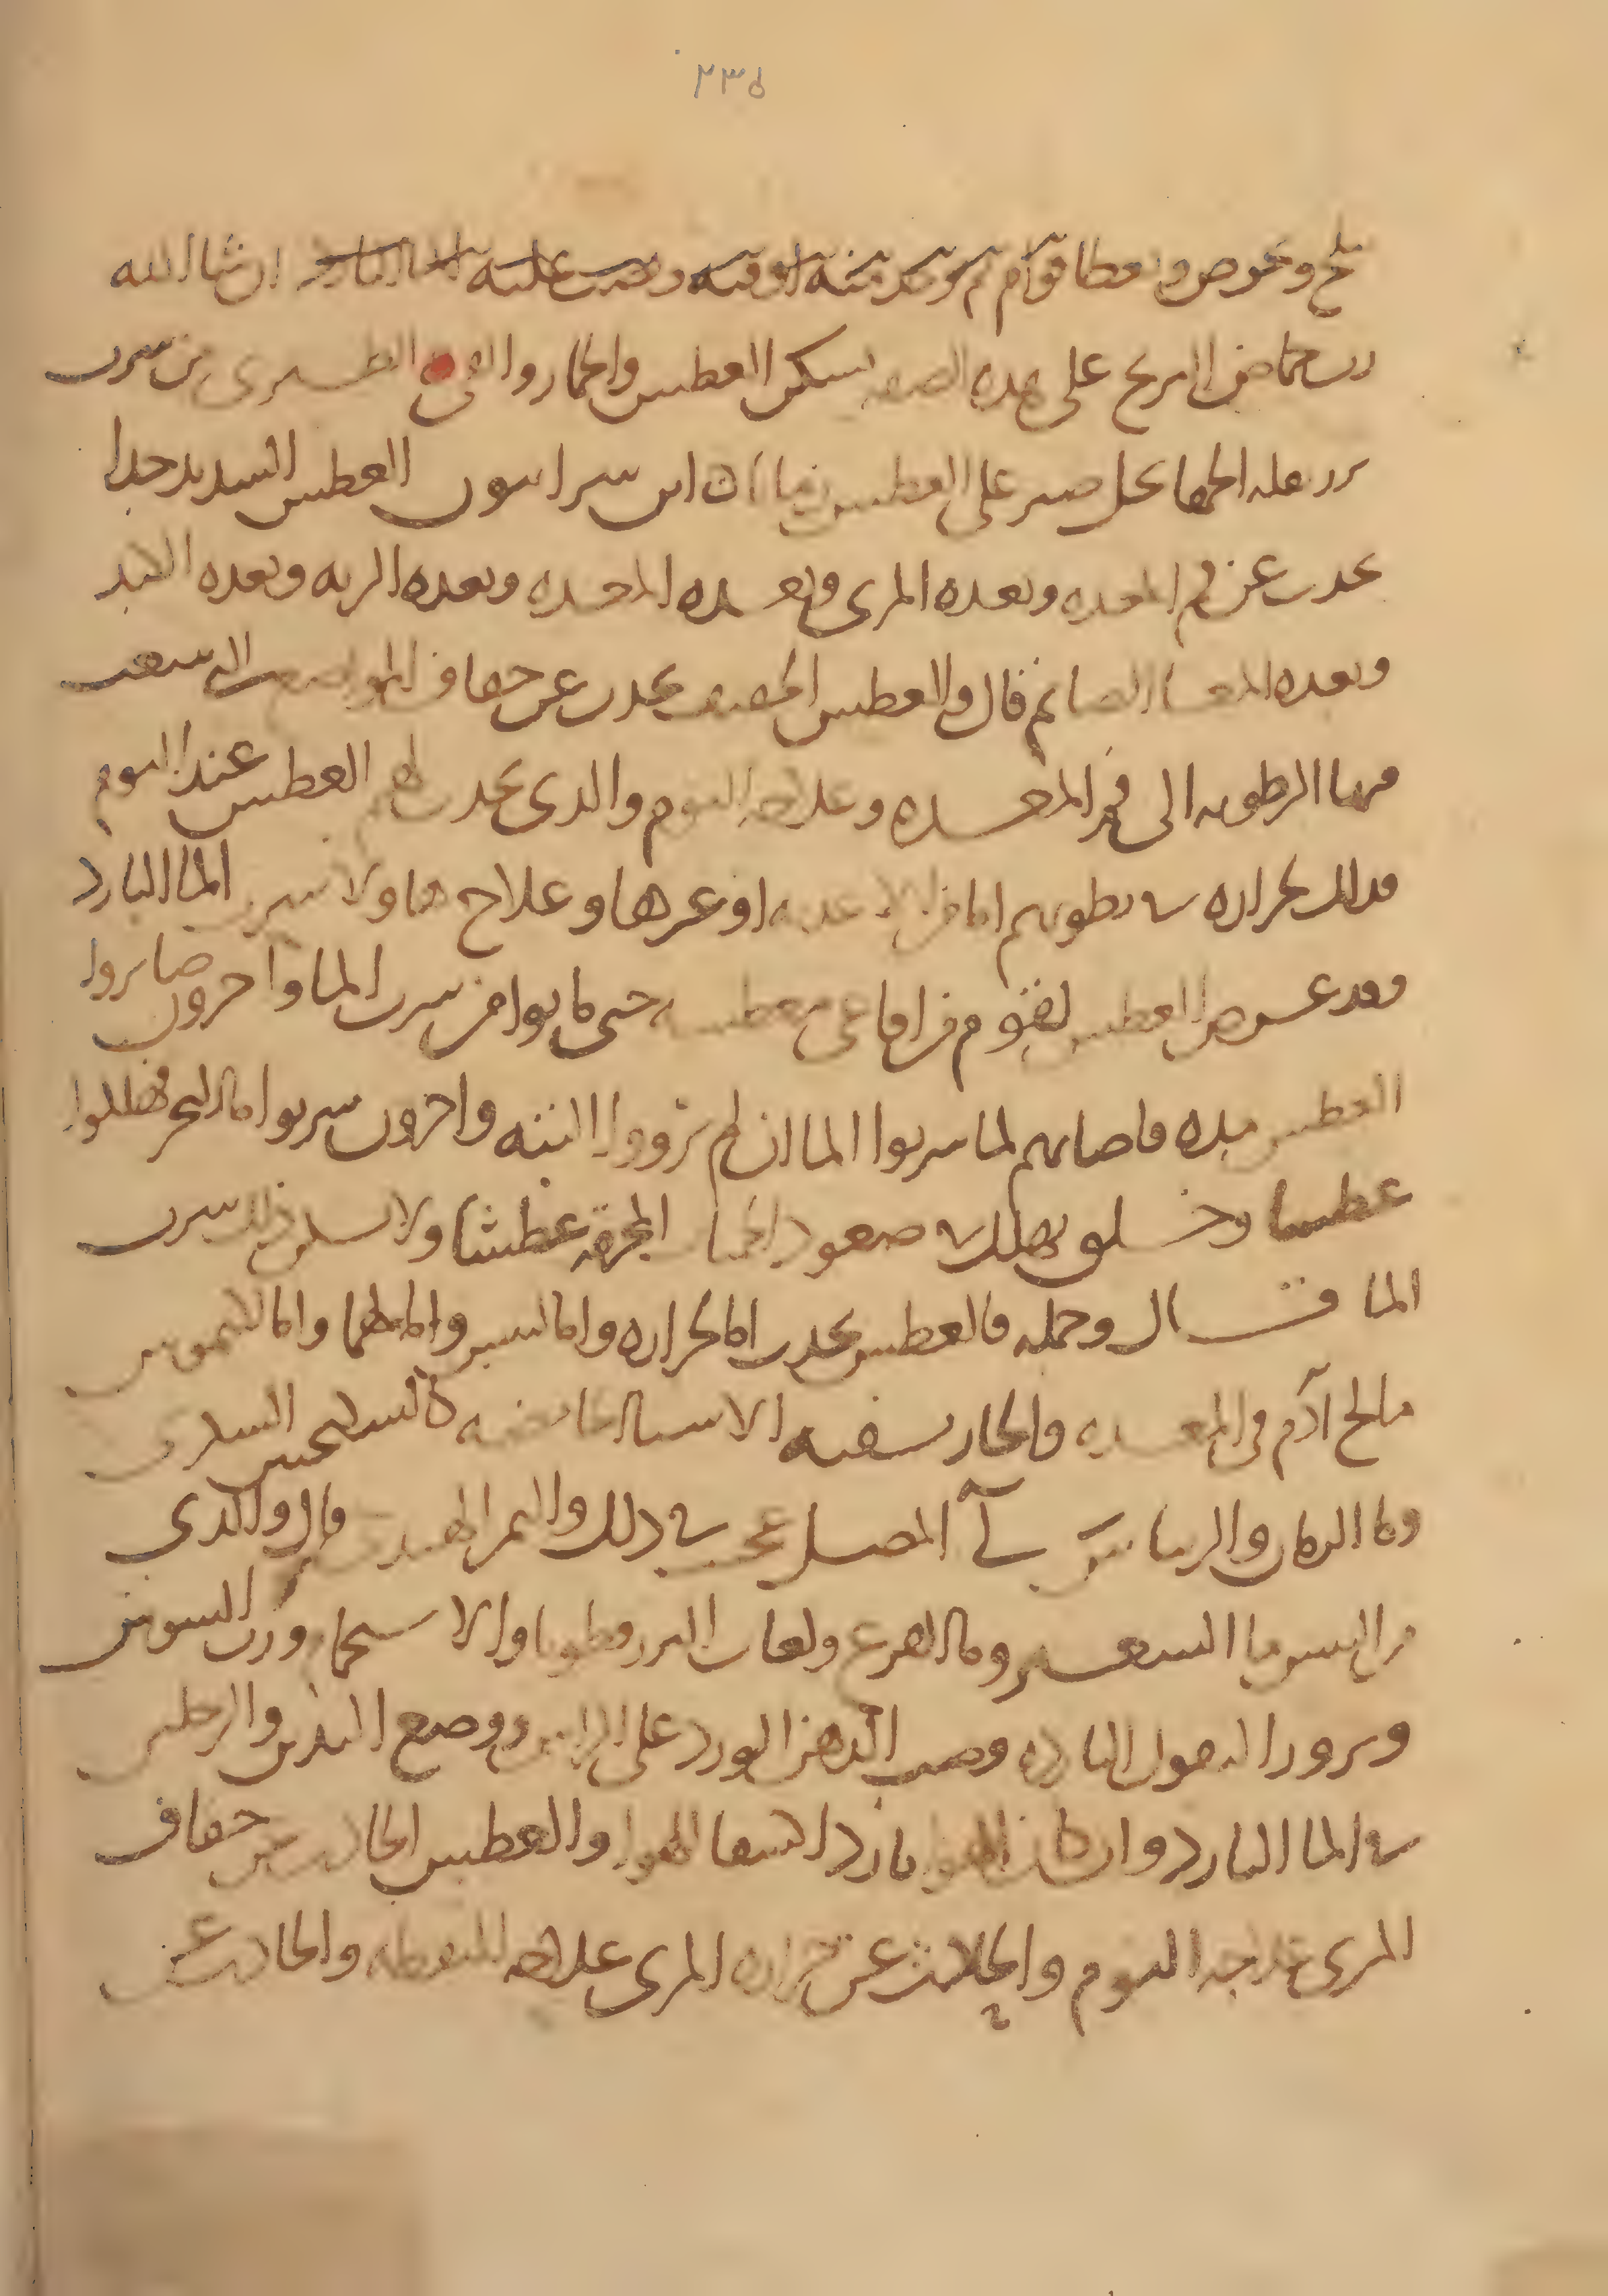 ٢٣٥
وتخوض و يعطا قوام ثم يوخذ منه اوقيه ويصب عليه الما البارد ان شا الله
رب حماض الاترج على هذه الصفه يسكن العطش والخمار والقى الطبرى من شرب
العطش ابن سرابيون العطش الشديد جدا
يحدث عن فم المعده وبعده المرى وبعده المعده وبعده الريه وبعده الكبد
وبعده المعا الصايم قال والعطش الخفيف يحدث عن جفاف المواضع التى تنبعث
منها الرطوبه الى فم المعده وعلاجه النوم والذى يحدث لهم العطش عند النوم
فذلك لحراره فى بطونهم اما من الاغذيه او غيرها وعلاج هاولا شرب الما البارد
وقد عرض العطش لقوم من افاعى معطشه حتى ماتوا من شرب الما واخرون صابروا
العطش مده فاصابهم لما شربوا الما ان لم يرووا البته واخرون شربوا ما البحر فهلكوا
عطشا وخلق يهلك فى صعود الحميات المحرقه عطشا ولا يسكن ذلك شرب
الما قال وجمله فالعطش يحدث اما لحراره واما ليبس واما لهما واما لكيموس
مالح اذم فى المعده والحار يشفيه الاشيا الحامضه كالسكنجبين السكرى
وما الرمان والريباس لى المصل عجيب فى ذلك والتمر الهندى قال والذى
من اليبس بما الشعير وما القرع ولعاب البزرقطونا والاستحمام ورب السوس
وبزور البقول البارده وصب الدهن الورد على الراس ووضع اليدين والرجلين
فى الما البارد وان كان الهوا باردا استنشقا الهوا والعطش الحادث عن جفاف
المرى علاجه النوم والحادث عن حراره المرى علاجه اليقظه والحادث عن